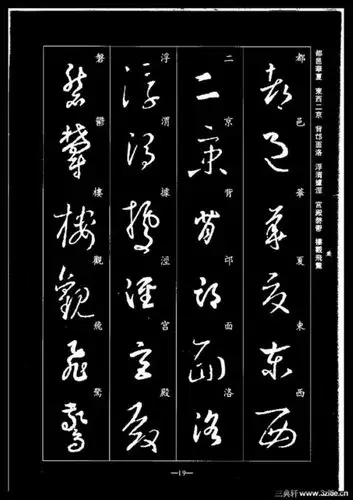 都邑華夏 東西二京 背邙面洛 浮渭據涇 宮殿磐鬱 樓觀飛驚
都邑華夏東西
二京背邙面洛
浮渭據涇宮殿
磐鬱樓觀飛驚
—19—
三典轩 www.32lae.cn